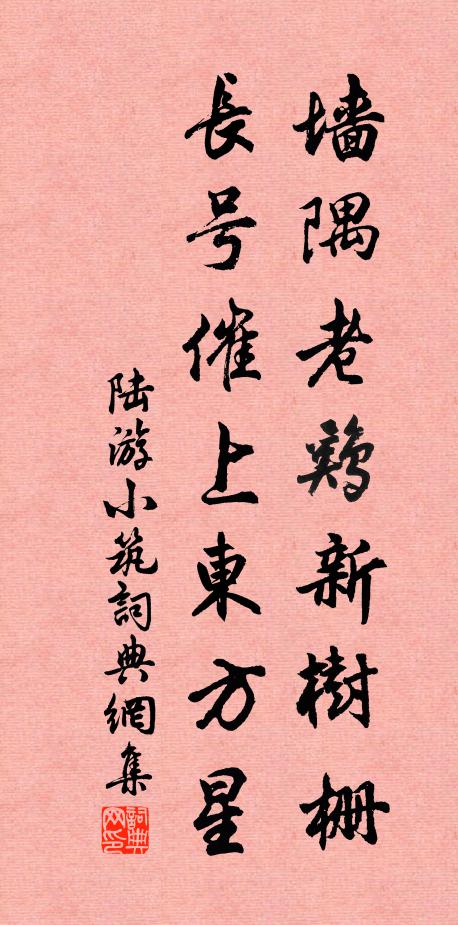 墙隅老鷄新樹栅
長号催上東方星
陆游小筑詞典網集
詞典
网印